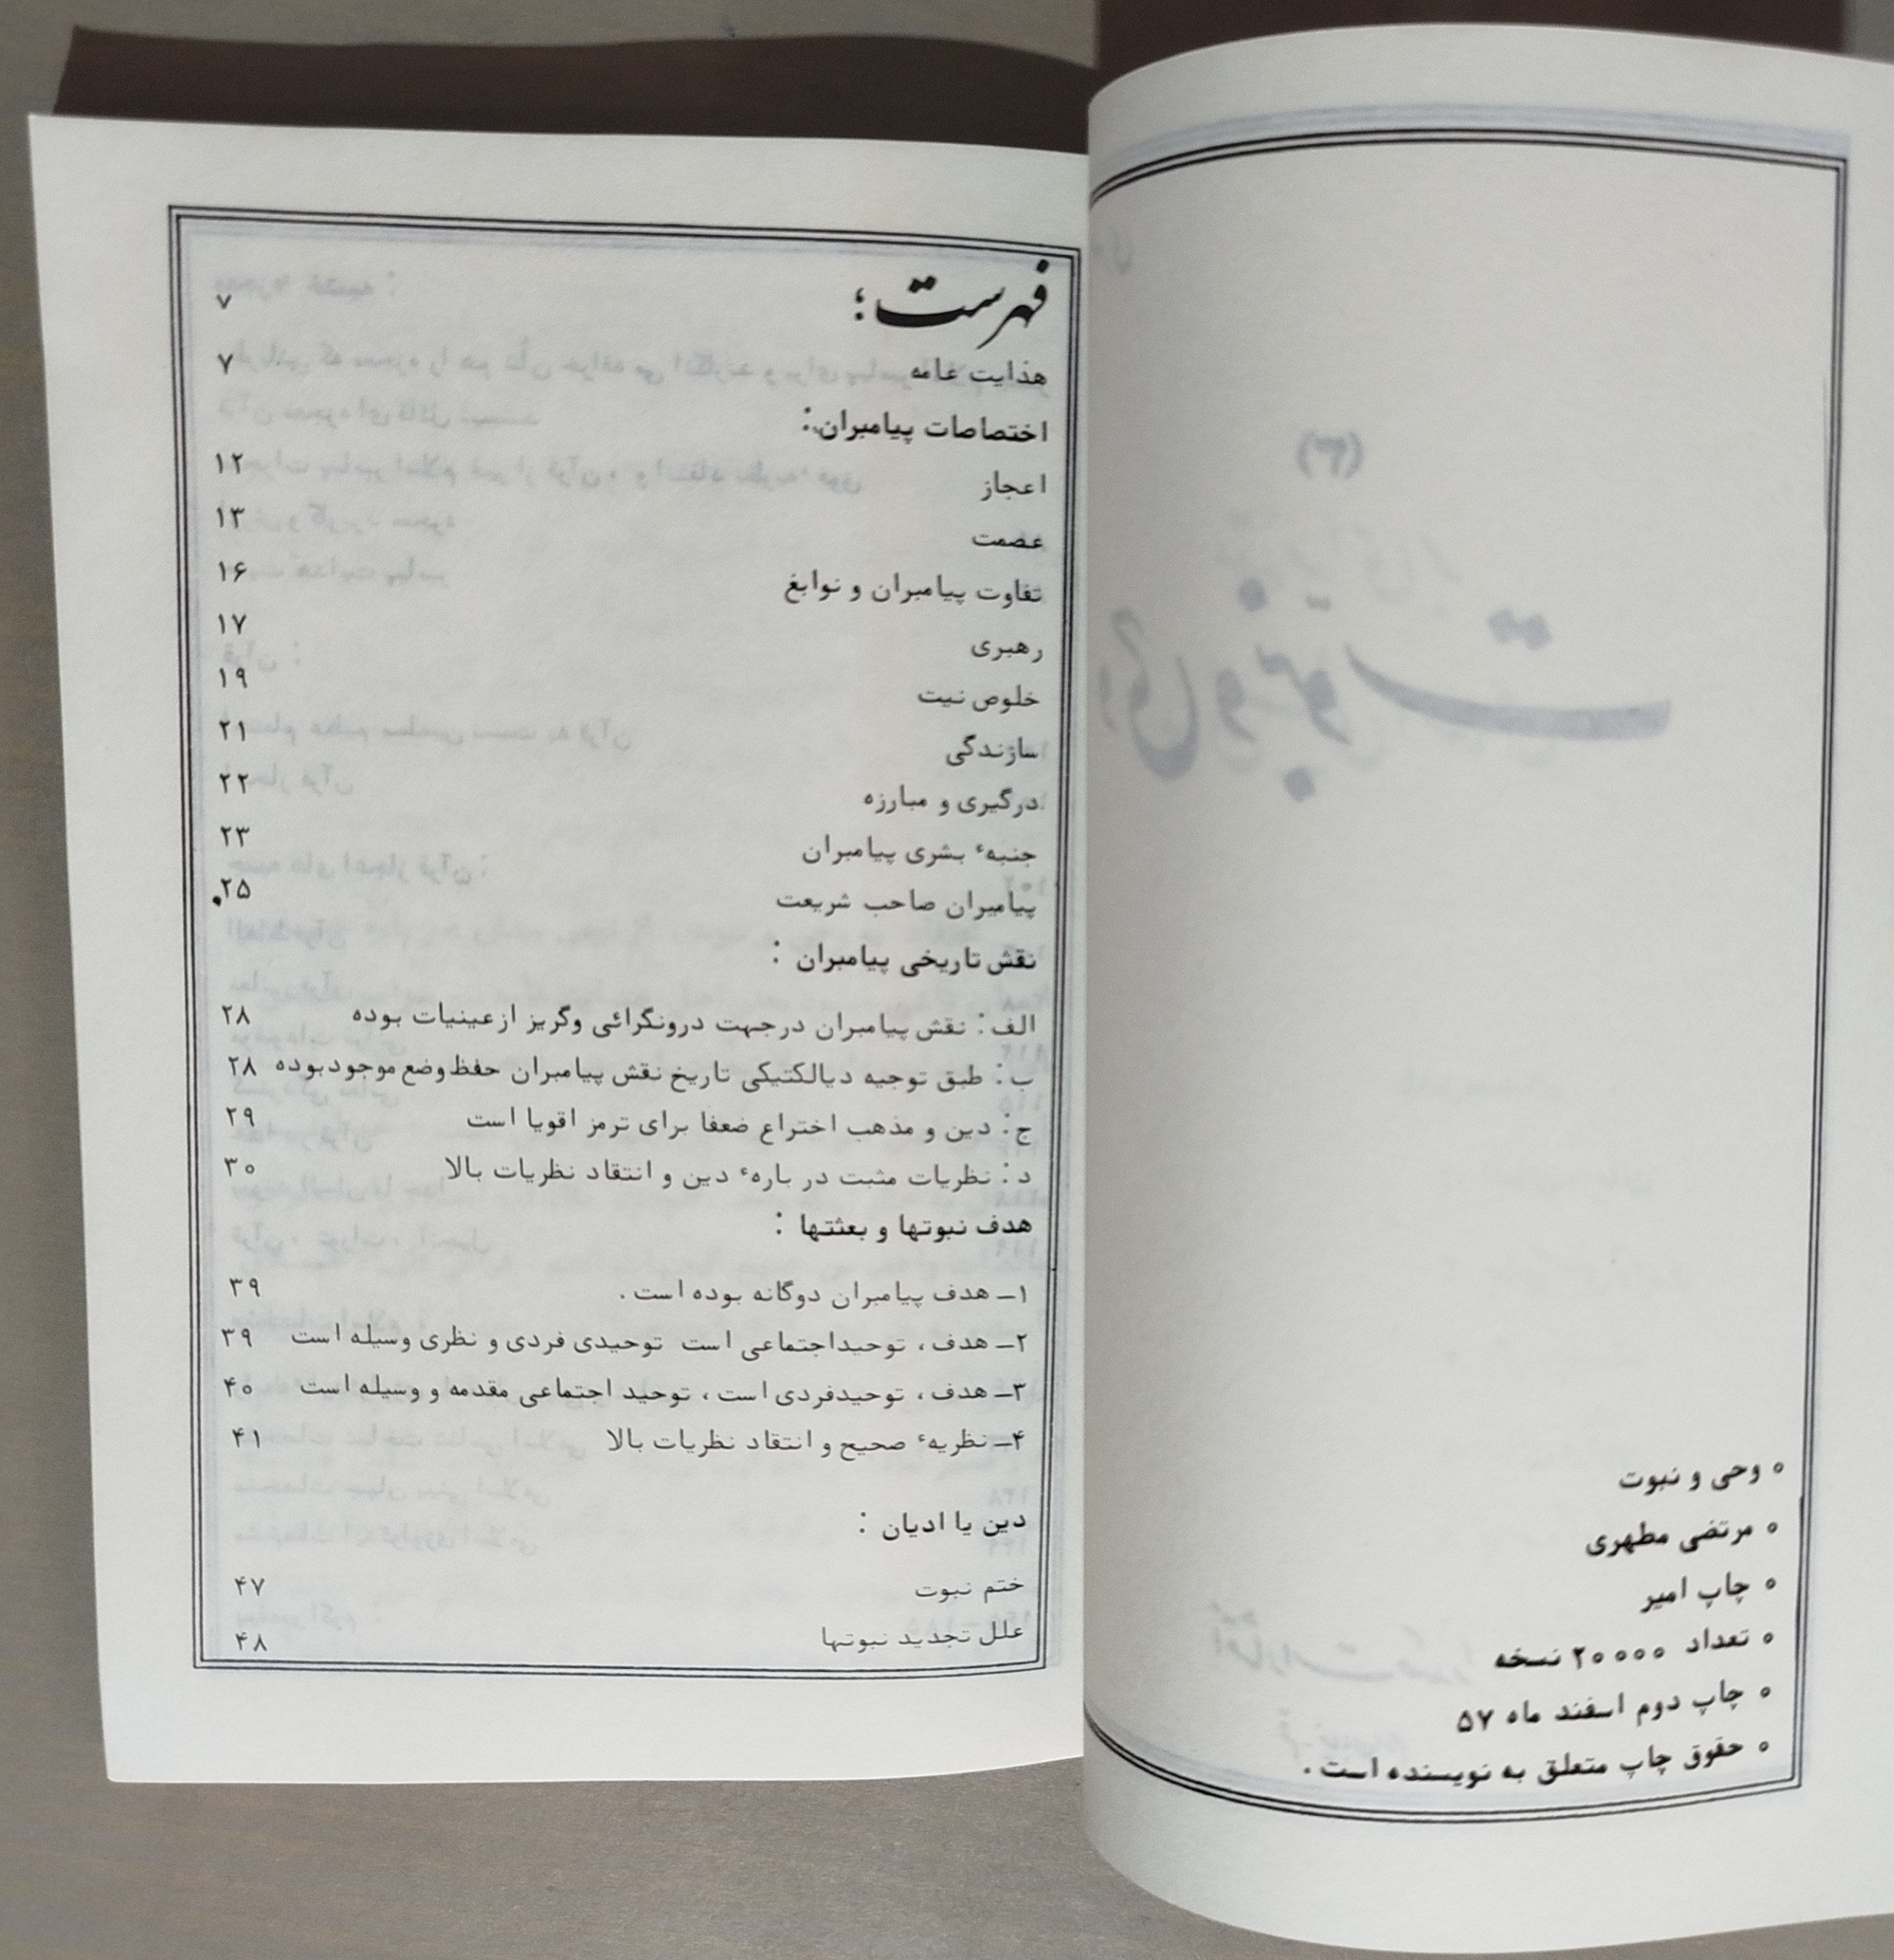 وحی و نبوت
مرتضی مطهری
چاپ امیر
تعداد ۲۰۰۰۰ نسخه
چاپ دوم اسفند ماه ۵۷
حقوق چاپ متعلق به نویسنده است .
فهرست؛ ۷
هدایت عامه ۷
اختصاصات پیامبران:
اعجاز ۱۲
عصمت ۱۳
تفاوت پیامبران و نوابغ ۱۶
رهبری ۱۷
خلوص نیت ۱۹
سازندگی ۲۱
درگیری و مبارزه ۲۲
جنبهٔ بشری پیامبران ۲۳
پیامبران صاحب شریعت ۲۵
نقش تاریخی پیامبران :
الف: نقش پیامبران درجهت درونگرائی وگریز ازعینیات بوده ۲۸
ب: طبق توجیه دیالکتیکی تاریخ نقش پیامبران حفظ وضع موجود بوده ۲۸
ج: دین و مذهب اختراع ضعفا برای ترمز اقویا است ۲۹
د: نظریات مثبت در بارهٔ دین و انتقاد نظریات بالا ۳۰
هدف نبوتها و بعثتها :
۱ـ هدف پیامبران دوگانه بوده است . ۳۹
۲ـ هدف، توحیداجتماعی است توحیدی فردی و نظری وسیله است ۳۹
۳ـ هدف، توحیدفردی است، توحید اجتماعی مقدمه و وسیله است ۴۰
۴ـ نظریهٔ صحیح و انتقاد نظریات بالا ۴۱
دین یا ادیان :
ختم نبوت ۴۷
علل تجدید نبوتها ۴۸